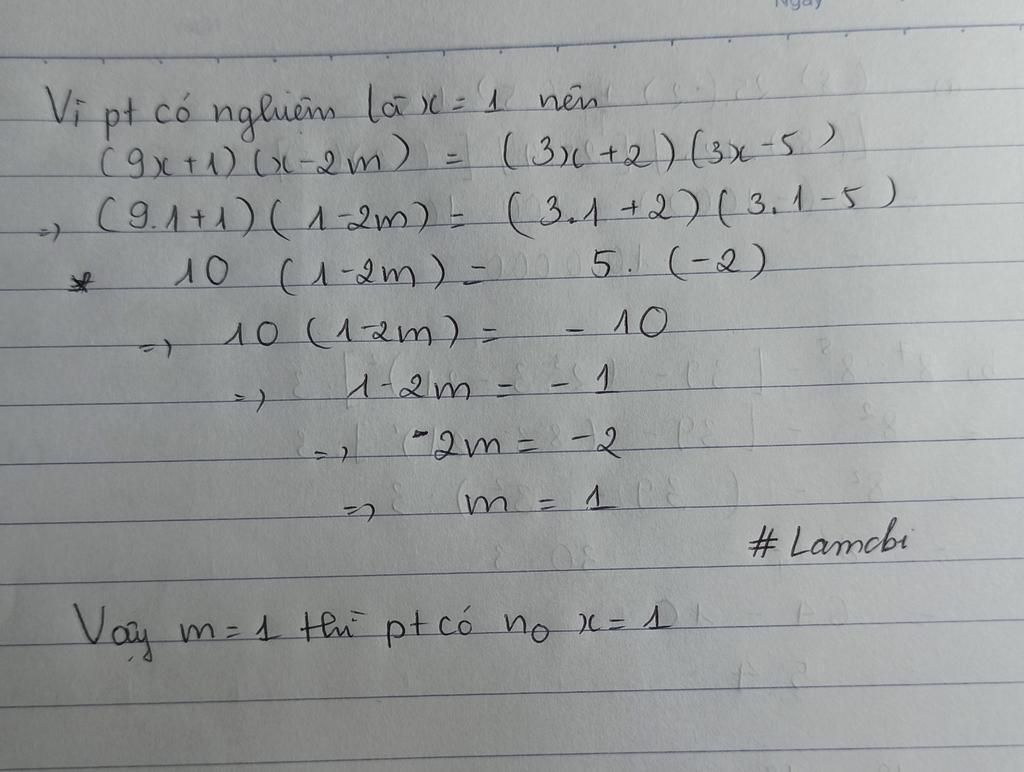 Ngày
Vì pt có nghiệm là x = 1 nên
(9x+1)(x-2m) = (3x+2)(3x-5)
=> (9.1+1)(1-2m) = (3.1+2)(3.1-5)
* 10 (1-2m) = 5. (-2)
=> 10 (1-2m) = - 10
=> 1-2m = - 1
=> -2m = -2
=> m = 1
# Lamchi
Vậy m = 1 thì pt có no x = 1